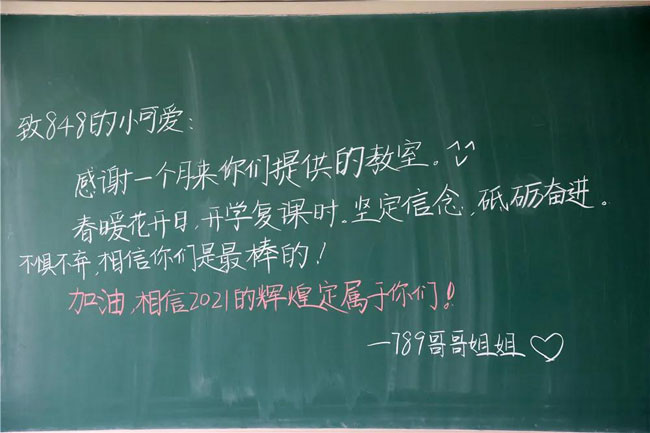 致848的小可爱:
感谢一个月来你们提供的教室。
春暖花开日,开学复课时。坚定信念,砥砺奋进。
不惧不弃,相信你们是最棒的!
加油,相信2021的辉煌定属于你们!
—789哥哥姐姐♡